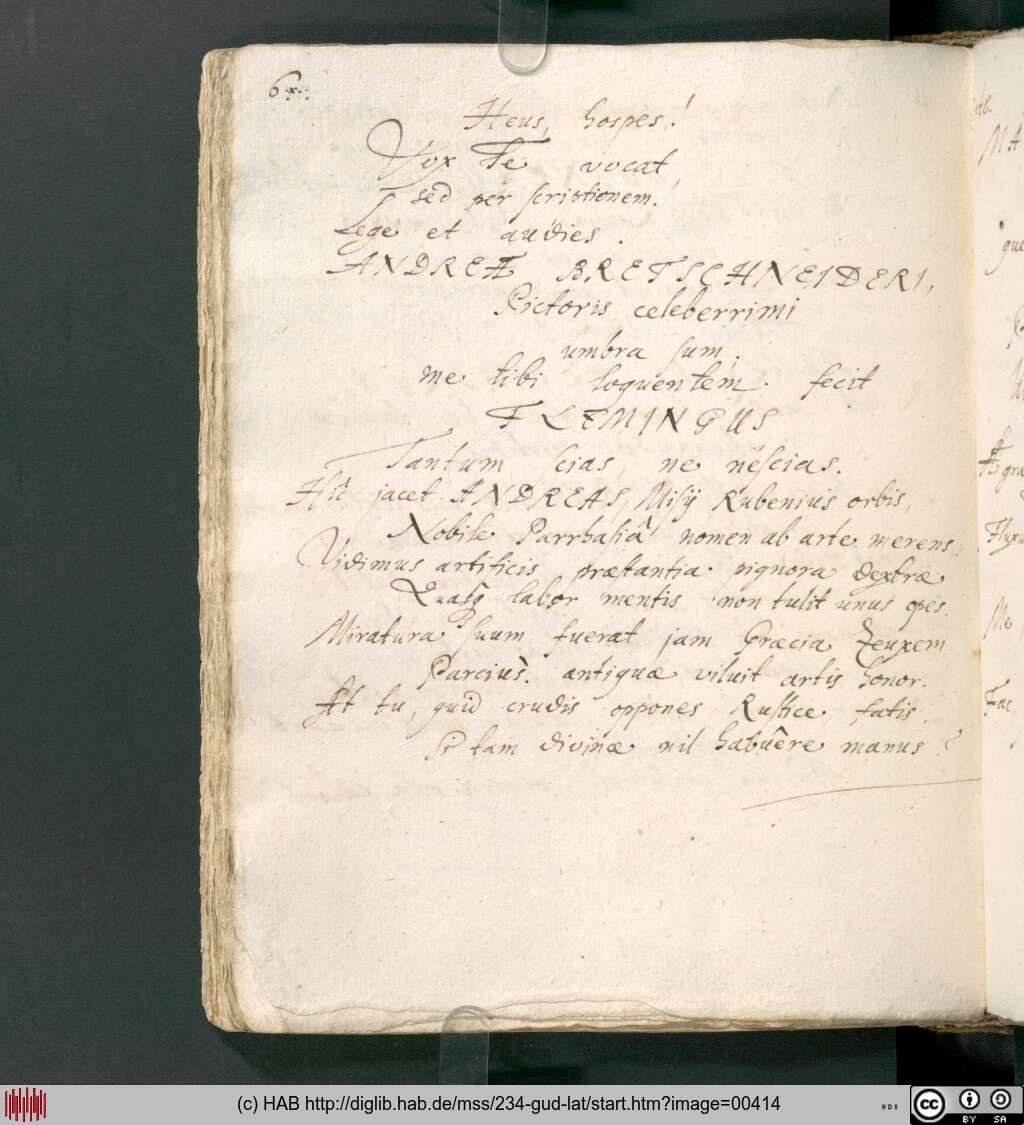 6
Heus, hospes!
Vox Te vocat,
sed per scriptionem.
Lege et audies.
ANDREÆ BRETSCHNEIDERI,
Pictoris celeberrimi
umbra sum.
me tibi loquentem. fecit
FLEMINGUS
Tantum scias, ne nescias.
Hic jacet ANDREAS, Misij Rubenius orbis,
Nobile Parrhasiâ nomen ab arte merens.
Vidimus artificis præstantia pignora dextræ
labor mentis non tulit unus opes.
Miratura suum fuerat jam Græcia Zeuxem
Parcius. antiquæ viluit artis honor.
At tu, quid crudis oppones, Rustice, fatis,
Si tam divinæ nil habuêre manus?
MA
gra
Me
Fac
(c) HAB http://diglib.hab.de/mss/234-gud-lat/start.htm?image=00414
cc BY SA